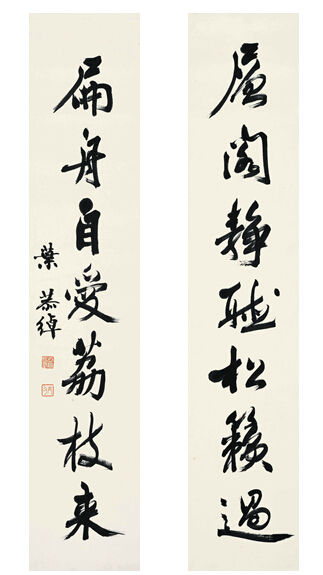 虛閣靜聽松籟過
扁舟自愛荔枝来
葉恭綽